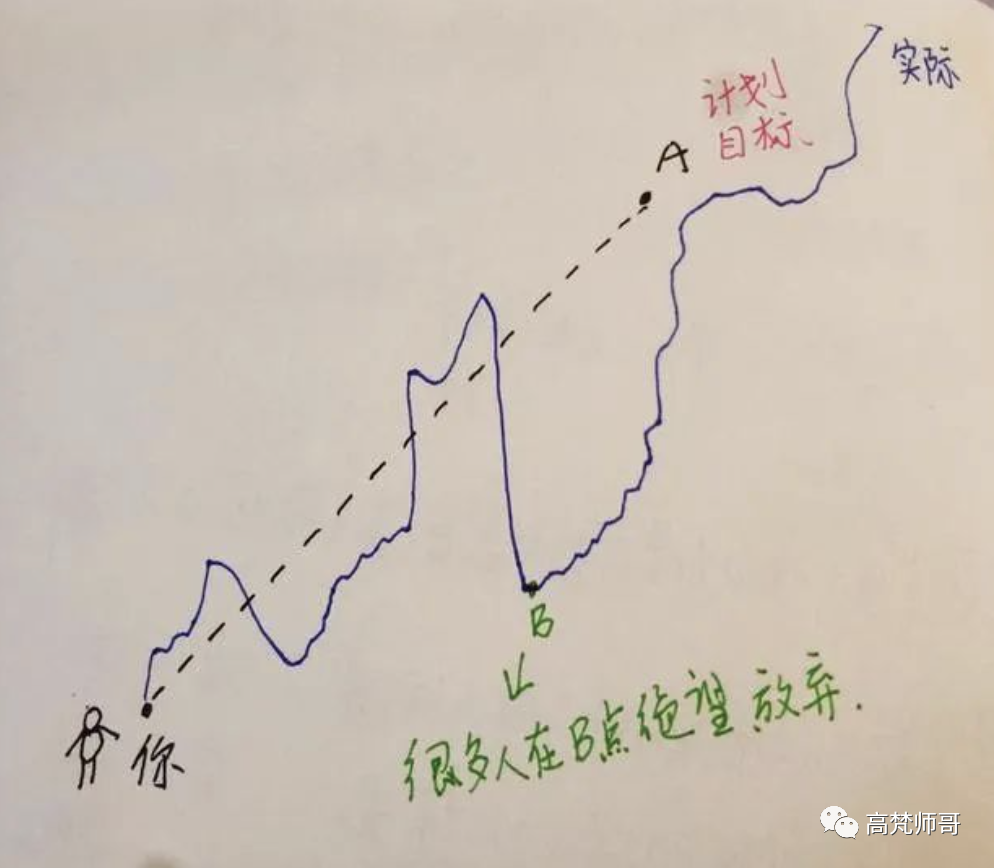 实际
计划
目标、
A
B
很多人在B点绝望、放弃.
你
高梵师哥